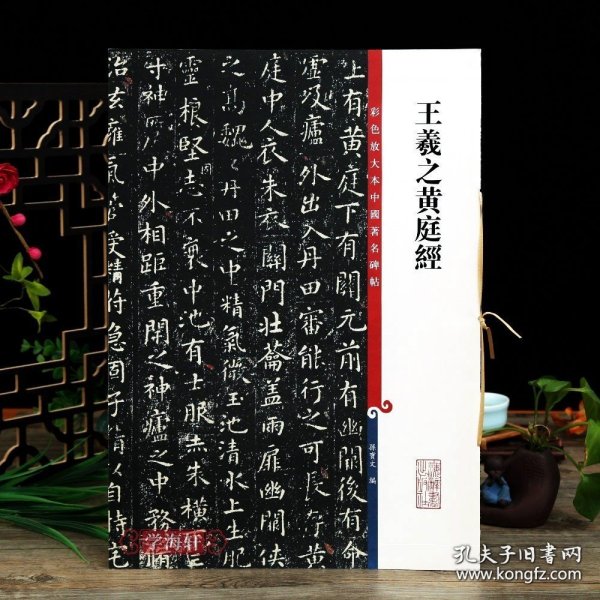 王羲之黄庭經
彩色放大本中國著名碑帖
孫寶文 編
上有黄庭下有關元前有幽闕後有命
盧外出入丹田審能行之可長存黄
庭中人衣朱衣關門壯蘥蓋兩扉幽闕俠
之高魏魏丹田之中精氣微玉池清水上生肥
靈根堅志不衰中池有士服赤朱橫
中外相距重閉之神廬之中務脩
治玄雍氣管受精符急固子精以自持宅
学海轩
孔夫子旧書网
www.kongfz.com